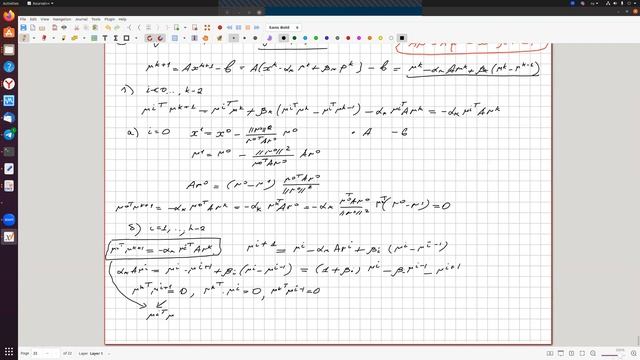 Activities Xournal++
File Edit View Navigation Journal Tools Plugin Help
Sans Bold
r^{k+1} = Ax^{k+1} - b = A(x^k - α_k r^k + β_k p^k) - b = r^k - α_k Ar^k + β_k (r^k - r^{k-1})
1) i < 0, .., k-2
r^{iT} r^{k+1} = r^{iT} r^k + β_k (r^{iT} r^k - r^{iT} r^{k-1}) - α_k r^{iT} Ar^k = -α_k r^{iT} Ar^k
а) i=0 x^1 = x^0 - \frac{||r^0||^2}{r^{0T} Ar^0} r^0 · A - b
r^1 = r^0 - \frac{||r^0||^2}{r^{0T} Ar^0} Ar^0
Ar^0 = (r^0 - r^1) \frac{r^{0T} Ar^0}{||r^0||^2}
r^{0T} r^{k+1} = -α_k r^{0T} Ar^k = -α_k r^{kT} Ar^0 = -α_k \frac{r^{0T} Ar^0}{||r^0||^2} r^{kT} (r^0 - r^1) = 0
б) i=1, .., k-2
r^{iT} r^{k+1} = -α_k r^{iT} Ar^k r^{i+1} = r^i - α_i Ar^i + β_i (r^i - r^{i-1})
α_i Ar^i = r^i - r^{i+1} + β_i (r^i - r^{i-1}) = (1 + β_i) r^i - β_i r^{i-1} - r^{i+1}
r^{kT} r^{i+1} = 0, r^{kT} r^i = 0, r^{kT} r^{i-1} = 0
r^{iT} r
Page 21 of 22 Layer Layer 1